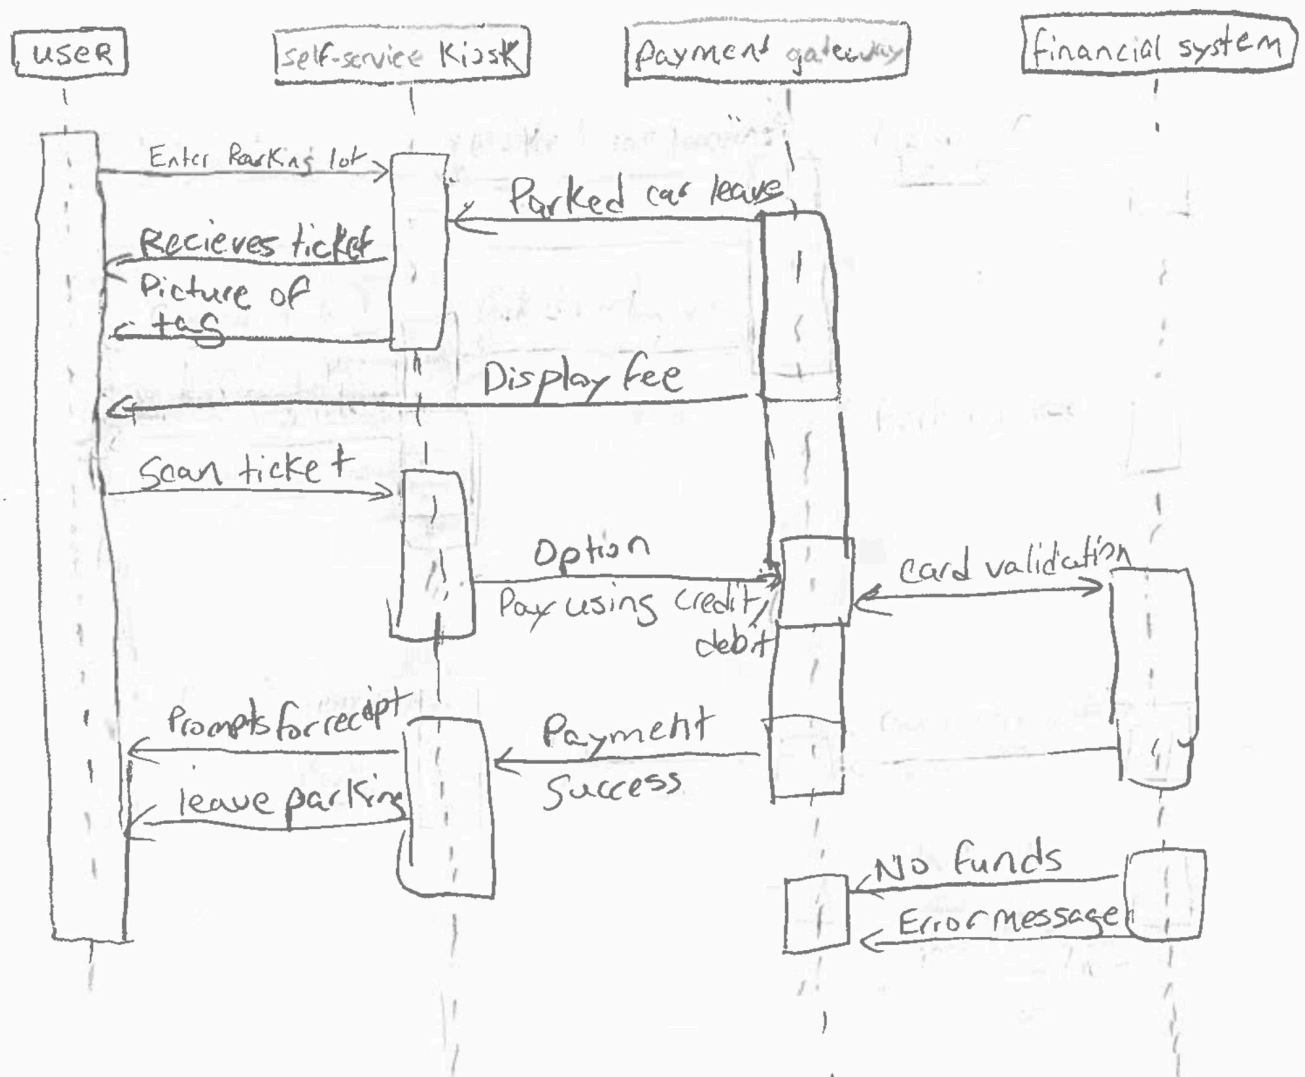 user
self-service Kiosk
payment gateway
financial system
Enter Parking lot
Parked car leave
Recieves ticket
Picture of
tag
Display fee
Scan ticket
Option
Pay using credit/
debit
card validation
Prompts for reciept
Payment
Success
leave parking
No funds
Error message